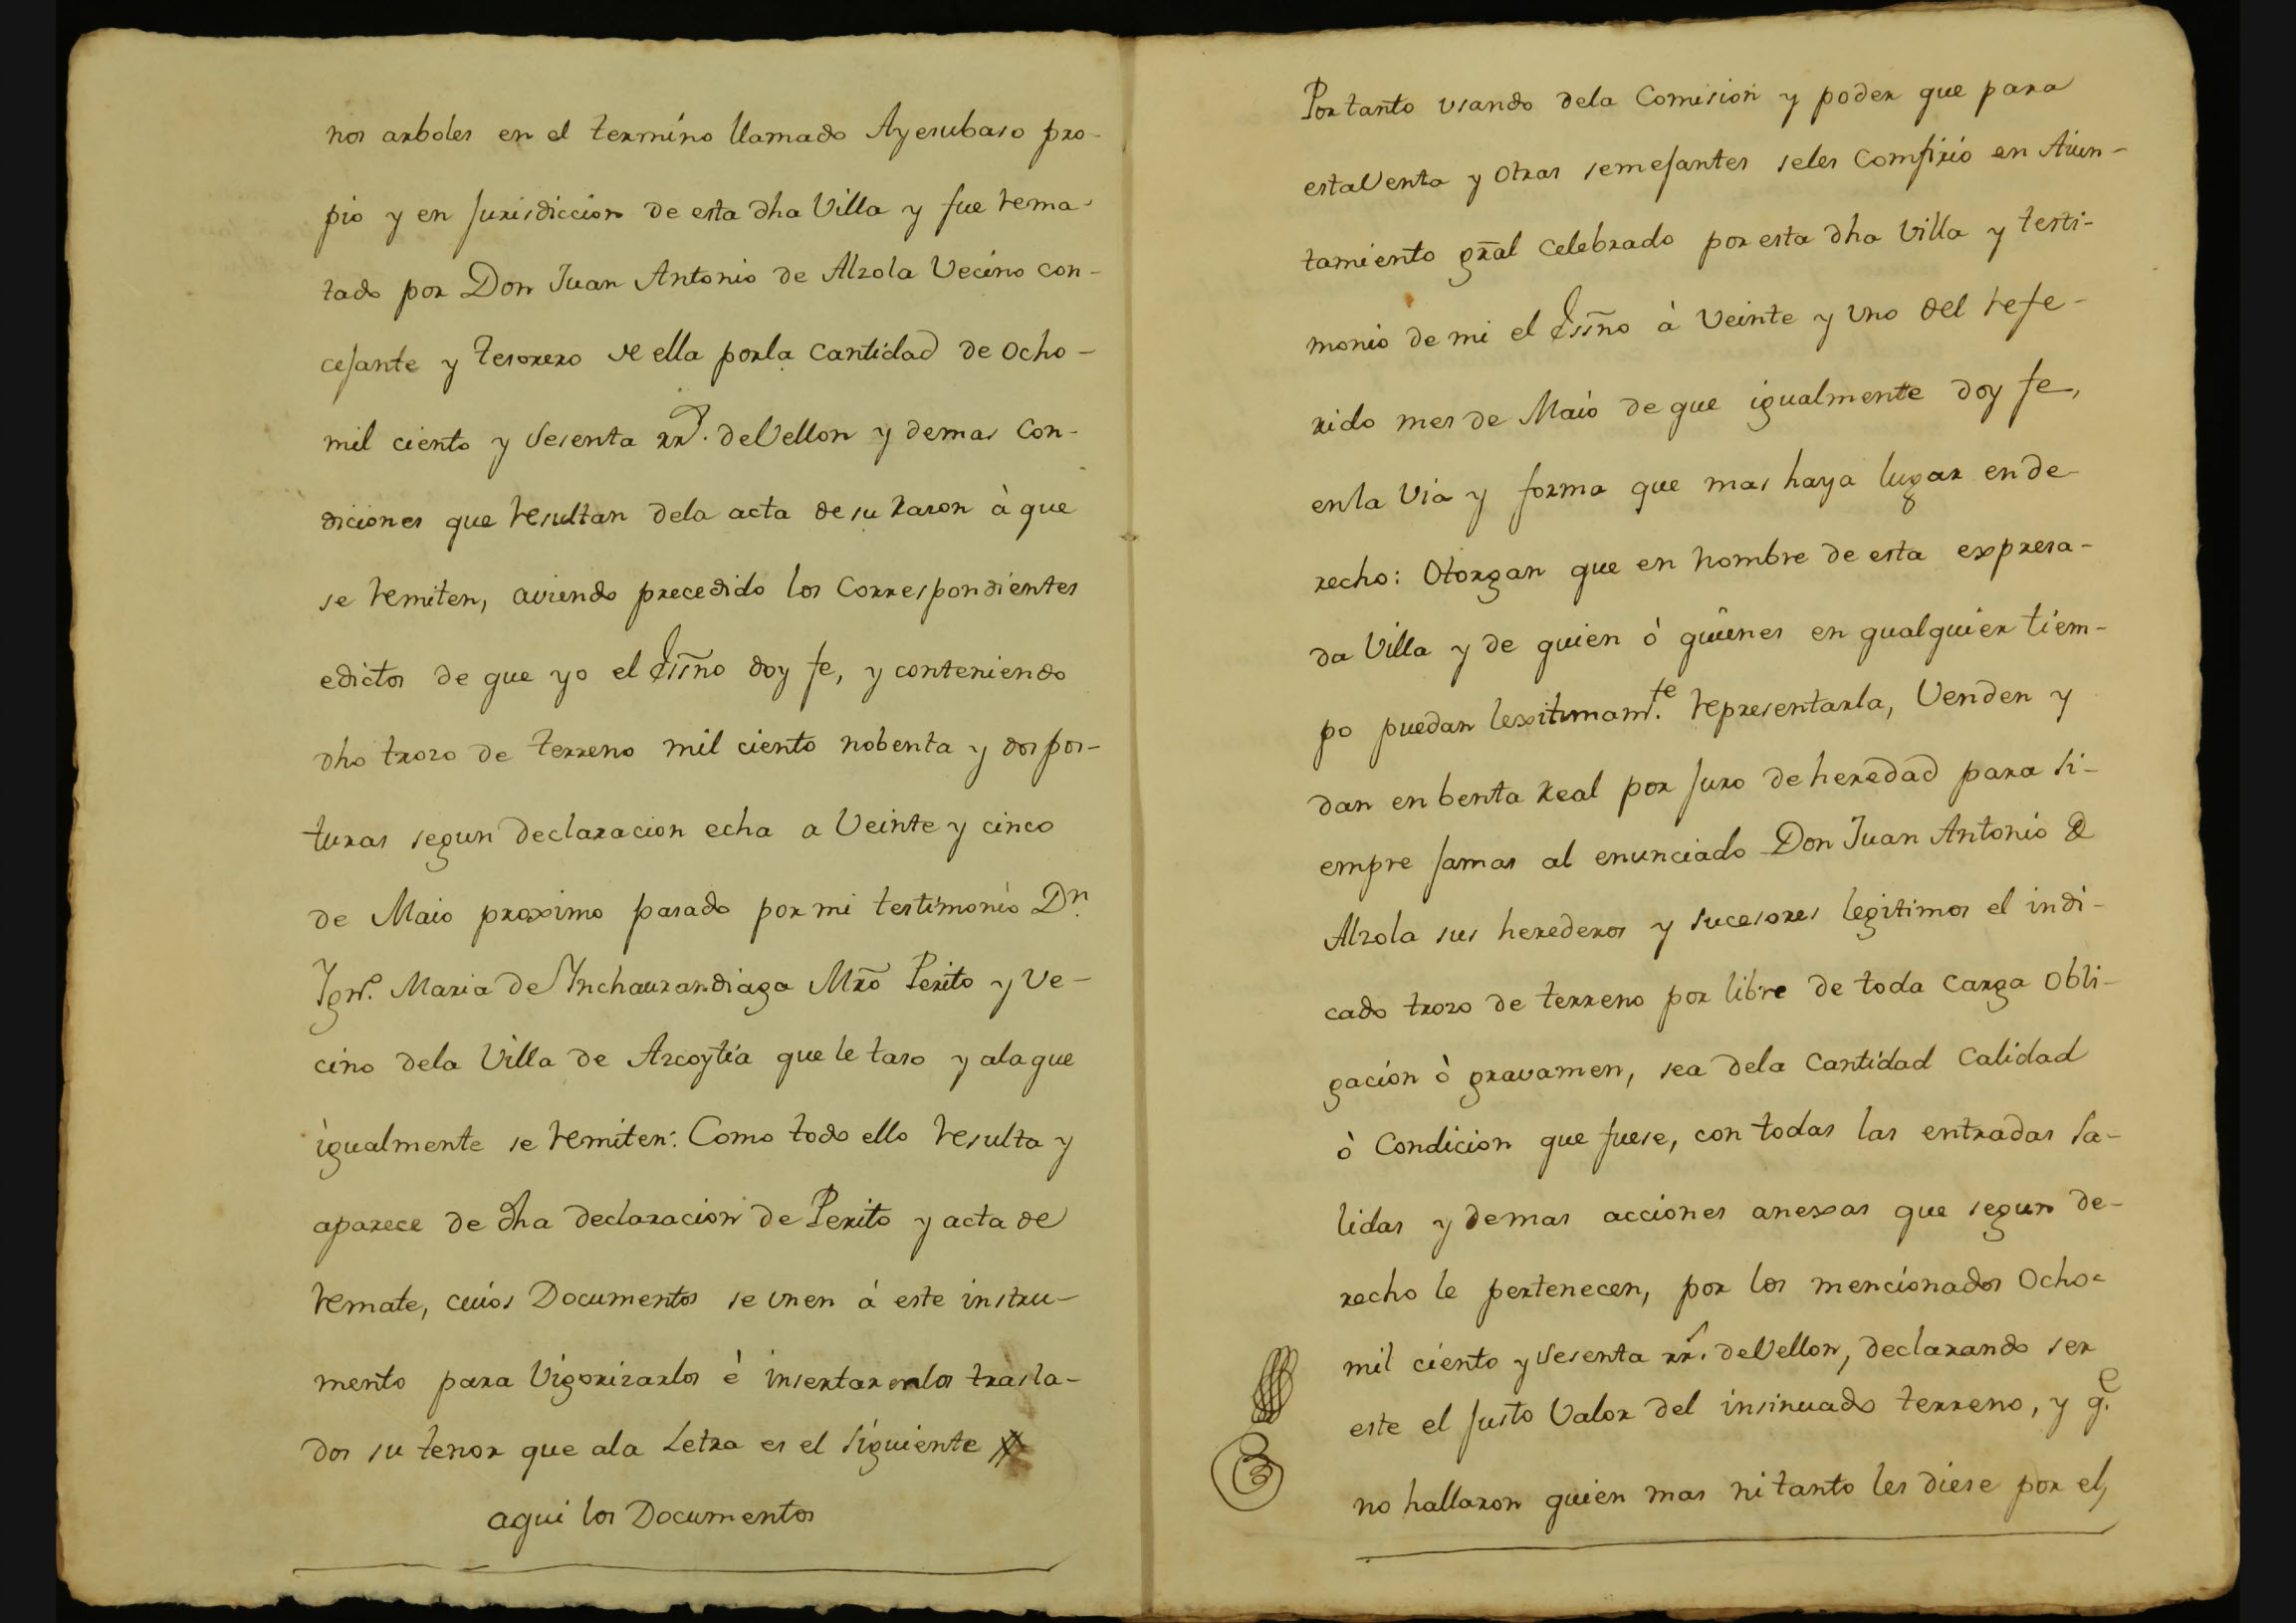 nos arboles en el termino llamado Ayesubaso pro-
pio y en Jurisdiccion de esta dha Villa y fue rema-
tado por Don Juan Antonio de Alzola Vecino con-
cejante y tesorero de ella porla cantidad de ocho-
mil ciento y Sesenta rr.s deVellon y demas con-
diciones que resultan dela acta de su razon à que
se remiten, aviendo precedido los correspondientes
edictos de que yo el Essño doy fe, y conteniendo
dho trozo de terreno mil ciento nobenta y dos pos-
turas segun declaracion echa a Veinte y cinco
de Maio proximo pasado por mi testimonio Dn.
Ign.o Maria de Ynchaurandiaga Mrõ Perito y Ve-
cino dela Villa de Azcoytia que le taso y ala que
igualmente se remiten: Como todo ello resulta y
aparece de dha declaracion de Perito y acta de
remate, cuios Documentos se unen á este instru-
mento para Vigorizarlos è insertar enlos trasla-
dos su tenor que ala Letra es el siguiente
aqui los Documentos
Portanto usando dela Comision y poder que para
estaVenta y otras semejantes seles comfirió en Aiun-
tamiento grãl celebrado por esta dha Villa y testi-
monio de mi el Essño à Veinte y uno del refe-
rido mes de Maio de que igualmente doy fe,
enla Via y forma que mas haya lugar en de-
recho: Otorgan que en nombre de esta expresa-
da Villa y de quien ò quienes en qualquier tiem-
po puedan lexitimam.te representarla, Venden y
dan en benta Real por Juro de heredad para si-
empre Jamas al enunciado Don Juan Antonio de
Alzola sus herederos y sucesores legitimos el indi-
cado trozo de terreno por libre de toda carga obli-
gación ò gravamen, sea dela Cantidad Calidad
ò Condicion que fuese, con todas las entradas sa-
lidas y demas acciones anexas que segun de-
recho le pertenecen, por los mencionados ocho-
mil ciento y Sesenta rr.s deVellon, declarando ser
este el Justo Valor del insinuado terreno, y q.e
no hallaron quien mas ni tanto les diese por el,